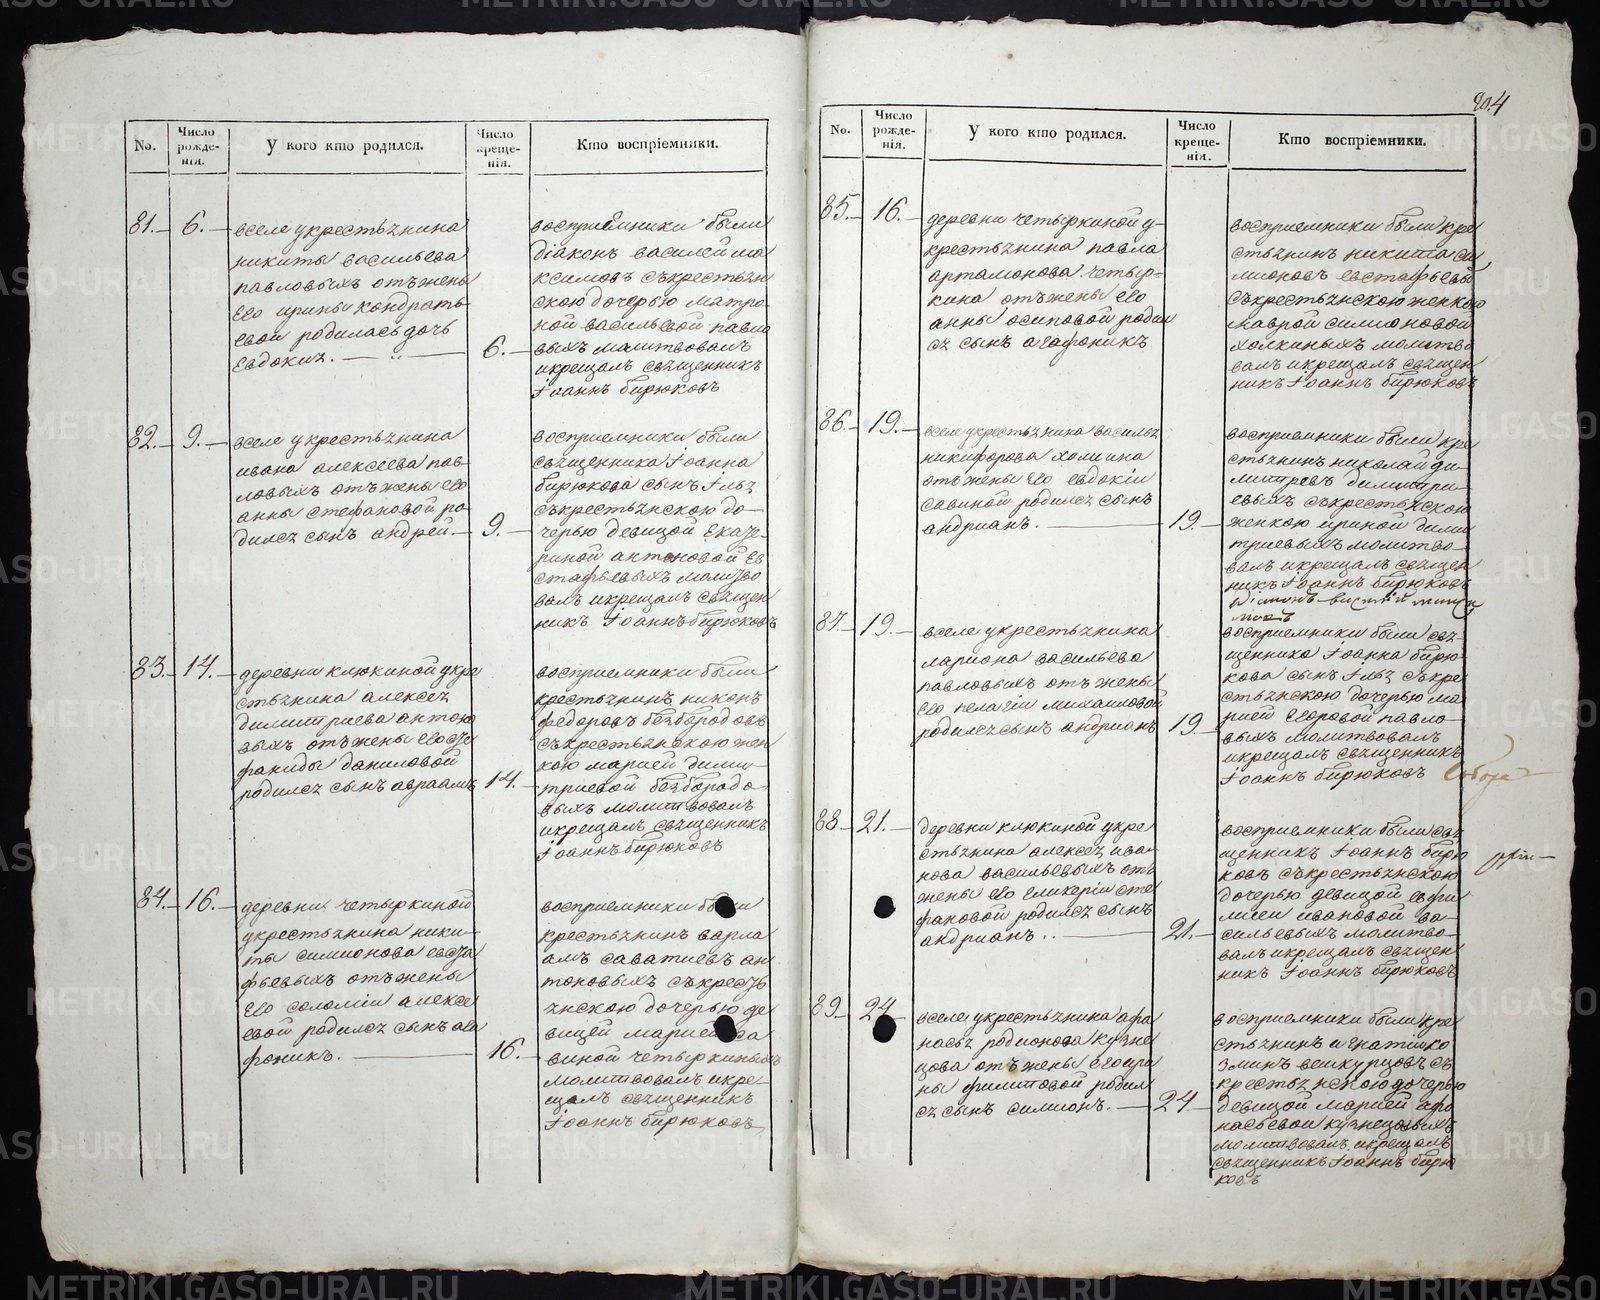 204
No.
Число рожде-нія.
У кого кто родился.
Число креще-нія.
Кто воспріемники.
81.
6.
вселе укрестьянина
никиты васильева
павловыхъ отъжены
его ирины кондрать
евой родиласьдочь
евдокия.
6.
восприемники были
діаконъ василей ма
ксимовъ съкрестьян
скою дочерью матро
ной васильевой павло
выхъ молитвовалъ
икрещалъ священникъ
Іоаннъ бирюковъ
82.
9.
вселе укрестьянина
ивана алексеева пав-
ловыхъ отъжены его
анны стефановой ро
дился сынъ андрей.
9.
восприемники были
священника Іоанна
бирюкова сынъ Илья
съкрестьянскою до-
черью девицой Екате-
риной антоновой ев
стафьевыхъ молитво
валъ икрещалъ священ
никъ Іоаннъ бирюковъ
83.
14.
деревни клюкиной укре
стьянина алексея
димитриева антоно
выхъ отъжены его сте
фаниды даниловой
родился сынъ авраамъ
14.
восприемники были
крестьянинъ никонъ
федоровъ безбородовъ
съкрестьянскою жен
кою марией дими-
триевой безбородо
выхъ молитвовалъ
икрещалъ священникъ
Іоаннъ бирюковъ
84.
16.
деревни четыркиной
укрестьянина ники-
ты симионова евста
фьевыхъ отъжены
его соломіи алексе
евой родился сынъ ага
фоникъ.
16.
восприемники были
крестьянинъ варла
амъ саватиевъ ан
тоновыхъ съкресть
янскою дочерью де
вицей марией са
виной четыркиныхъ
молитвовалъ икре-
щалъ священникъ
Іоаннъ бирюковъ
No.
Число рожде-нія.
У кого кто родился.
Число креще-нія.
Кто воспріемники.
85.
16.
деревни четыркиной у-
крестьянина павла
артамонова четыр-
кина отъжены его
анны осиповой родил
ся сынъ агафоникъ
восприемники были кре
стьянинъ никита си
мионовъ евстафьевы
съкрестьянскою женкою
маврой симионовой
холкиныхъ молитво
валъ икрещалъ священ
никъ Іоаннъ бирюковъ
86.
19.
вселе укрестьянина василья
никифорова
отъжены его евдокіи
савиной родился сынъ
андрианъ.
19.
восприемники были кре
стьянинъ николай ди-
митриевъ димитри-
евыхъ съкрестьянскою
женкою ириной дими
триевыхъ молитво-
валъ икрещалъ священ
никъ Іоаннъ бирюковъ
87.
19.
вселе укрестьянина
лариона васильева
павловыхъ отъжены
его пелагіи михаиловой
родился сынъ андрианъ
19.
восприемники были свя-
щенника Іоанна бирю-
кова сынъ Илья съкре
стьянскою дочерью ма
рией Егоровой павло-
выхъ молитвовалъ
икрещалъ священникъ
Іоаннъ бирюковъ
88.
21.
деревни клюкиной укре
стьянина алексея ива
нова васильевыхъ отъ
жены его гликеріи сте
фановой родился сынъ
андрианъ..
21.
восприемники были свя
щенникъ Іоаннъ бирю
ковъ съкрестьянскою
дочерью девицой евфи
миеи ивановой ва-
сильевыхъ молитво-
валъ икрещалъ священ
никъ Іоаннъ бирюковъ
89.
24
вселе укрестьянина афа
насья родионова кузне
цова отъжены его ири
ны филиповой родил
ся сынъ симионъ.
24.
восприемники были кре
стьянинъ игнатий ко
зминъ съ
крестьянскою дочерью
девицой марией афо
насьевой кузнецовыхъ
молитвовалъ икрещалъ
священникъ Іоаннъ бирю
ковъ
METRIKI.GASO-URAL.RU